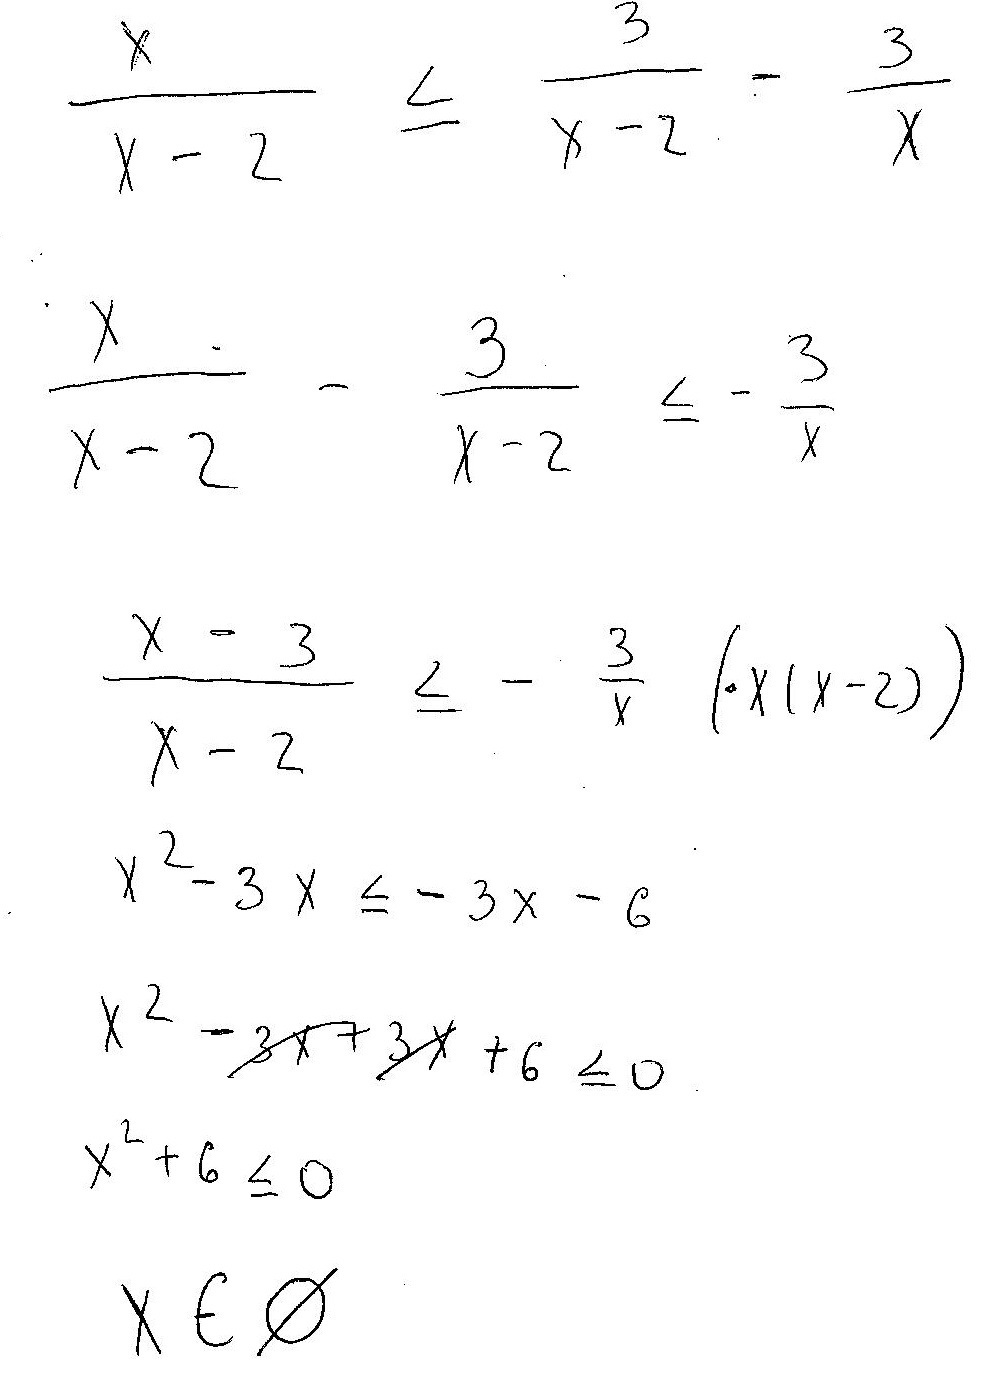 x/(x-2) ≤ 3/(x-2) - 3/x
x/(x-2) - 3/(x-2) ≤ - 3/x
(x-3)/(x-2) ≤ - 3/x (·x(x-2))
x²-3x ≤ -3x-6
x²-3x+3x+6 ≤ 0
x²+6 ≤ 0
x ∈ ∅